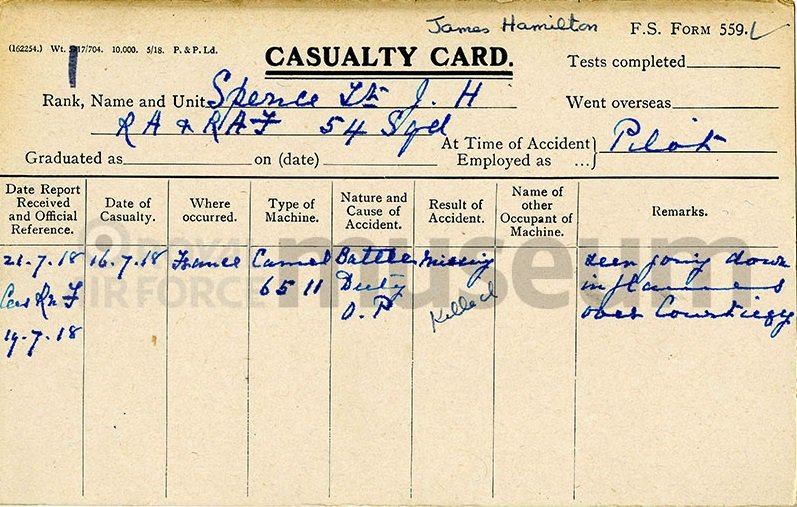 James Hamilton F.S. FORM 559.
(162254.) Wt. /704. 10,000. 5/18. P. & P. Ld.
CASUALTY CARD.
Tests completed
Rank, Name and Unit Spence Lt J. H
Went overseas
RA & RAF 54 Sqd
At Time of Accident Employed as ... Pilot
Graduated as on (date)
Date Report Received and Official Reference.
Date of Casualty.
Where occurred.
Type of Machine.
Nature and Cause of Accident.
Result of Accident.
Name of other Occupant of Machine.
Remarks.
21.7.18 16.7.18 France Camel Battle Missing seen going down
Cas RAF 6511 Duty Killed in flammes
19.7.18 O.P over
ROYAL AIR FORCE museum